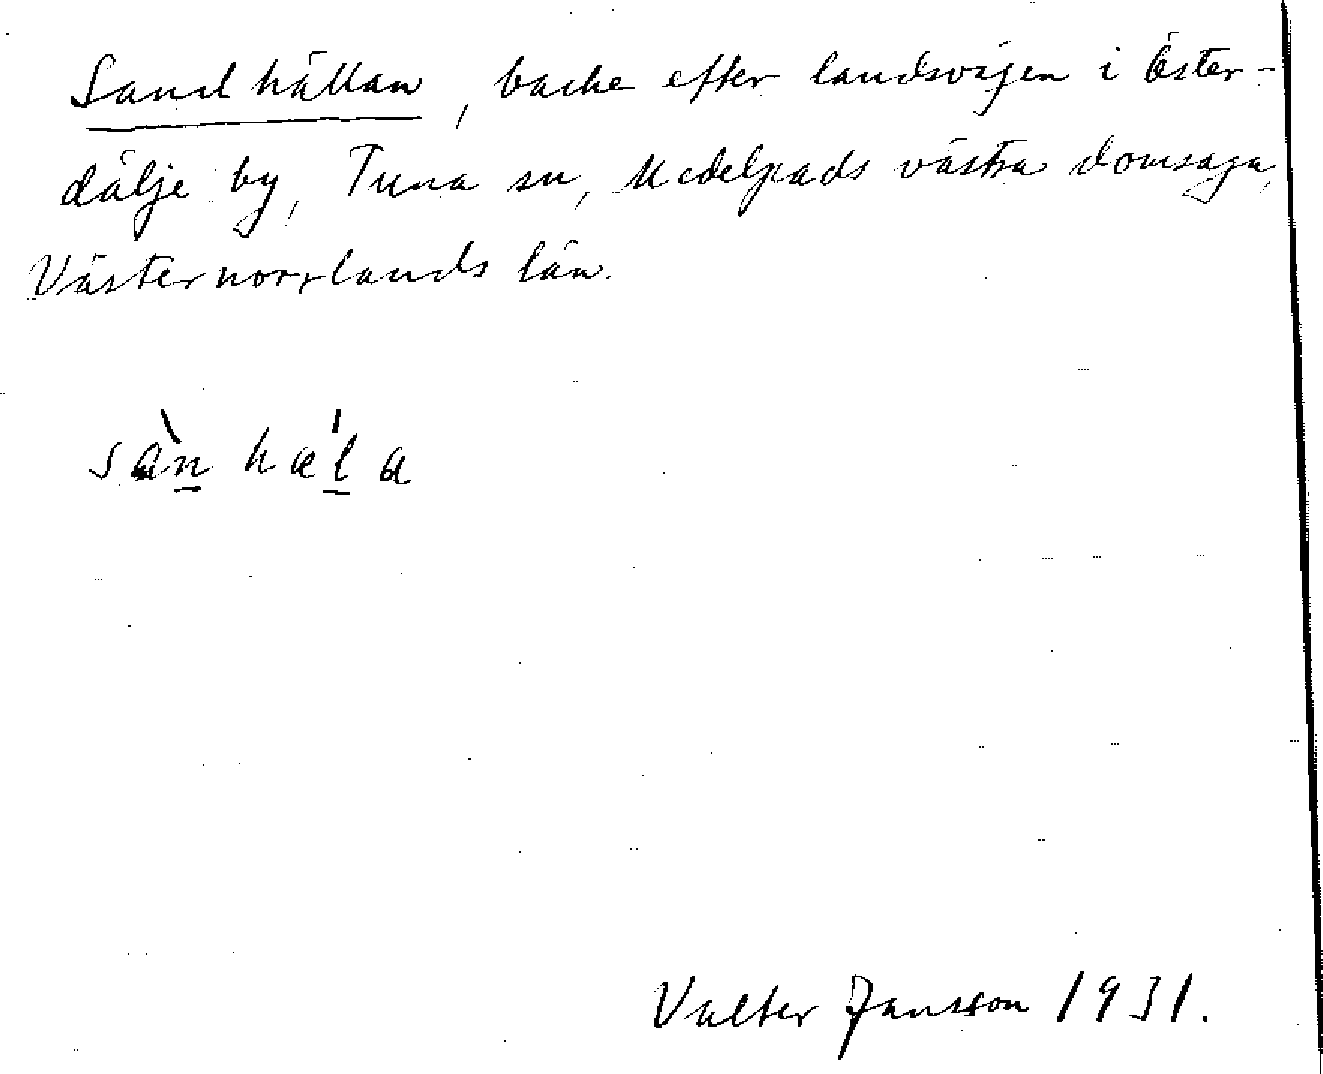 Sandhällan, backe efter landsvägen i Öster-
dälje by, Tuna sn, Medelpads västra domsaga,
Västernorrlands län.
sàn hæ'l a
Valter Jansson 1931.